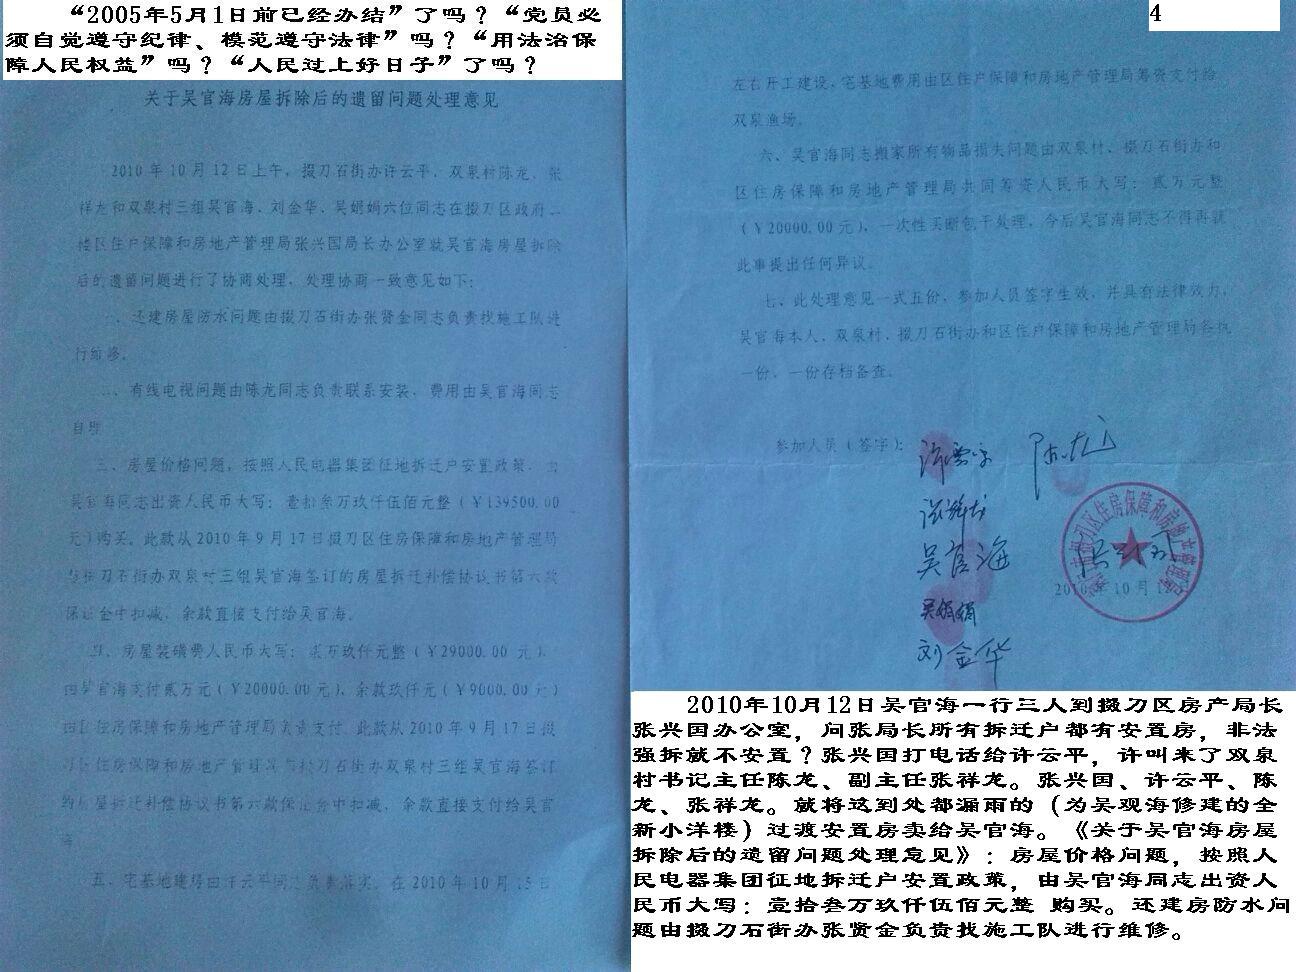 “2005年5月1日前已经办结”了吗？“党员必
须自觉遵守纪律、模范遵守法律”吗？“用法治保
障人民权益”吗？“人民过上好日子”了吗？
关于吴官海房屋拆除后的遗留问题处理意见
2010年10月12日上午，掇刀石街办许云平、双泉村陈龙、张
祥龙和双泉村三组吴官海、刘金华、吴娟娟六位同志在掇刀区政府二
楼区住户保障和房地产管理局张兴国局长办公室就吴官海房屋拆除
后的遗留问题进行了协商处理，处理协商一致意见如下：
一、还建房屋防水问题由掇刀石街办张贤金同志负责找施工队进
行维修。
二、有线电视问题由陈龙同志负责联系安装，费用由吴官海同志
自理
三、房屋价格问题，按照人民电器集团征地拆迁户安置政策，由
吴官海同志出资人民币大写：壹拾叁万玖仟伍佰元整（￥139500.00
元)购买。此款从2010年9月17日掇刀区住房保障和房地产管理局
与掇刀石街办双泉村三组吴官海签订的房屋拆迁补偿协议书第六款
保证金中扣减，余款直接支付给吴官海。
四、房屋装璜费人民币大写：贰万玖仟元整（￥29000.00 元），
由吴官海支付贰万元（￥20000.00元），余款玖仟元（￥9000.00元）
由区住房保障和房地产管理局负责支付。此款从2010年9月17日掇
刀区住房保障和房地产管理局与掇刀石街办双泉村三组吴官海签订
的房屋拆迁补偿协议书第六款保证金中扣减，余款直接支付给吴官
海
五、宅基地建房由许云平同志负责落实，在2010年10月15日
4
左右开工建设，宅基地费用由区住户保障和房地产管理局筹资支付给
双泉渔场。
六、吴官海同志搬家所有物品损失问题由双泉村、掇刀石街办和
区住房保障和房地产管理局共同筹资人民币大写：贰万元整
（￥20000.00元），一次性买断包干处理，今后吴官海同志不得再就
此事提出任何异议。
七、此处理意见一式五份，参加人员签字生效，并具有法律效力，
吴官海本人、双泉村、掇刀石街办和区住户保障和房地产管理局各执
一份，一份存档备查。
参加人员（签字）：
许云平 陈龙
张祥龙
吴官海 张兴国
吴娟娟
刘金华
2010年10月12日
2010年10月12日吴官海一行三人到掇刀区房产局长
张兴国办公室，问张局长所有拆迁户都有安置房，非法
强拆就不安置？张兴国打电话给许云平，许叫来了双泉
村书记主任陈龙、副主任张祥龙。张兴国、许云平、陈
龙、张祥龙。就将这到处都漏雨的（为吴观海修建的全
新小洋楼）过渡安置房卖给吴官海。《关于吴官海房屋
拆除后的遗留问题处理意见》：房屋价格问题，按照人
民电器集团征地拆迁户安置政策，由吴官海同志出资人
民币大写：壹拾叁万玖仟伍佰元整 购买。还建房防水问
题由掇刀石街办张贤金负责找施工队进行维修。